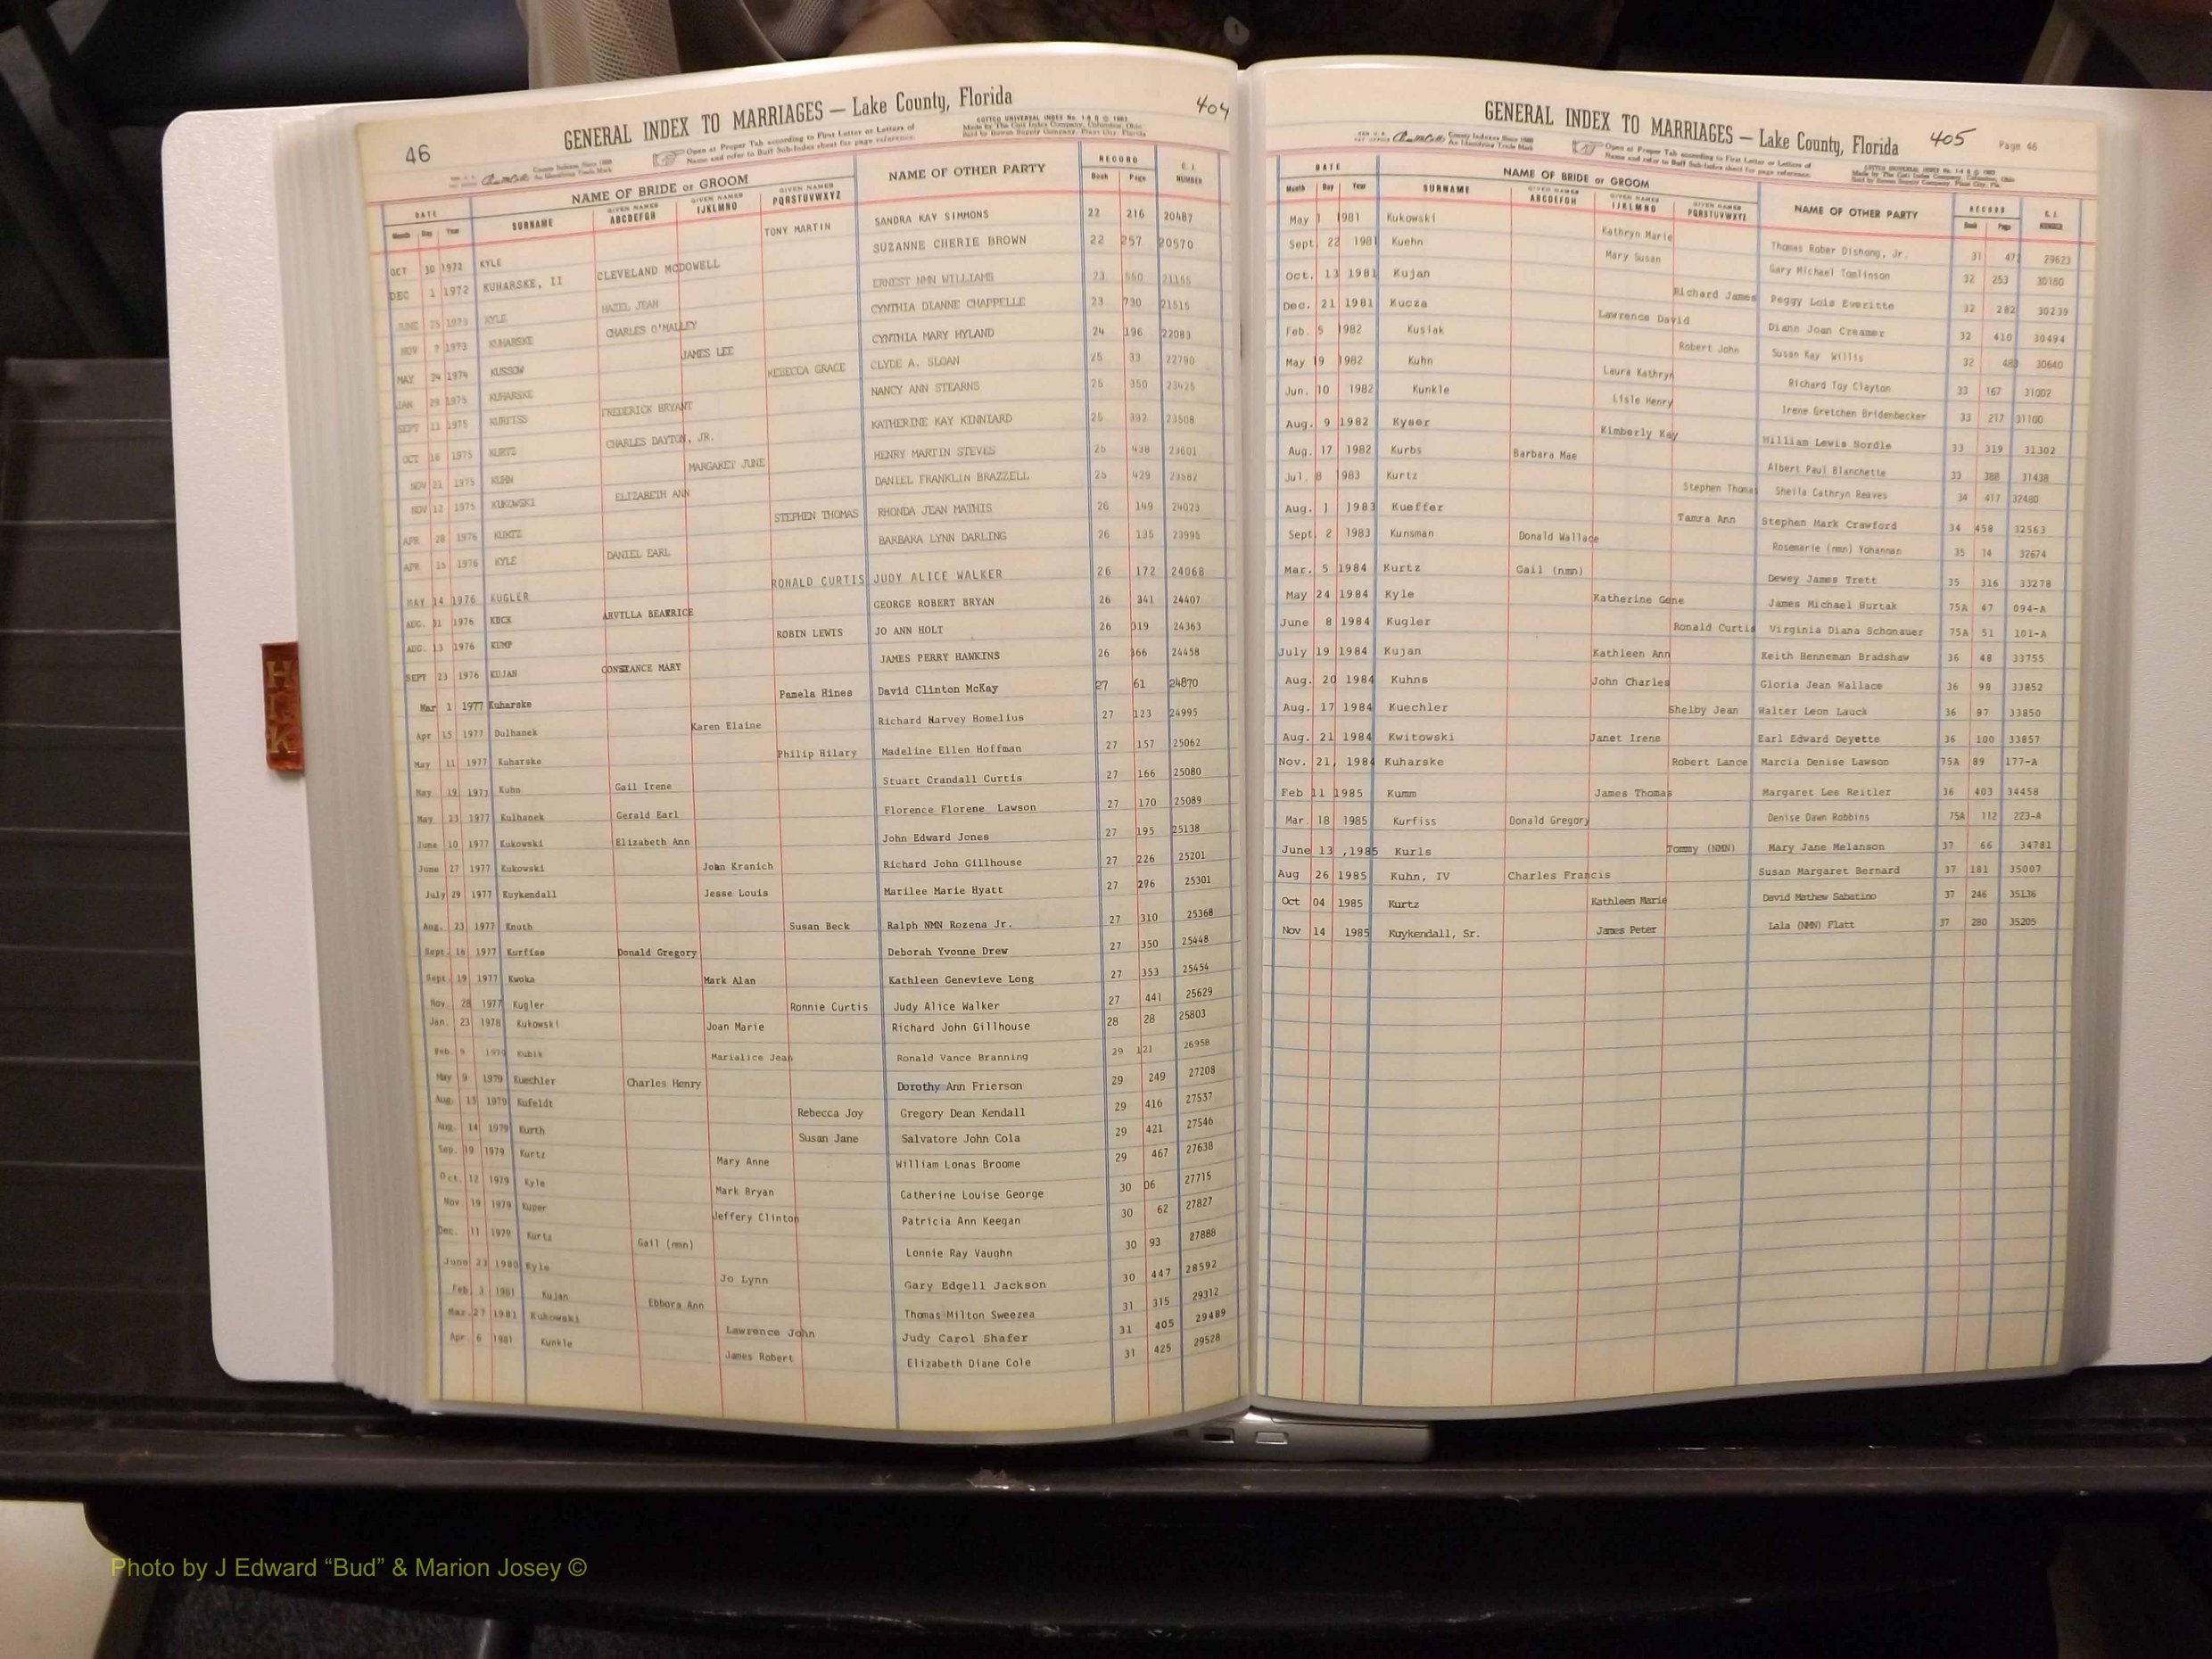 46
GENERAL INDEX TO MARRIAGES — Lake County, Florida
404
Open at Proper Tab according to First Letter or Letters of
Name and refer to Buff Sub-Index sheet for page reference.
DATE NAME OF BRIDE or GROOM NAME OF OTHER PARTY RECORD
Month Day Year SURNAME GIVEN NAMES ABCDEFGH GIVEN NAMES IJKLMNO GIVEN NAMES PQRSTUVWXYZ Book Page NUMBER
OCT 30 1972 KYLE TONY MARTIN SANDRA KAY SIMMONS 22 216 20487
DEC 1 1972 KUHARSKE, II CLEVELAND MCDOWELL SUZANNE CHERIE BROWN 22 257 20570
JUNE 25 1973 KYLE HAZEL JEAN ERNEST NMN WILLIAMS 23 550 21155
NOV 7 1973 KUHARSKE CHARLES O'MALLEY CYNTHIA DIANNE CHAPPELLE 23 730 21515
MAY 24 1974 KUSSOW JAMES LEE CYNTHIA MARY HYLAND 24 196 22083
JAN 29 1975 KUHARSKE REBECCA GRACE CLYDE A. SLOAN 25 33 22790
SEPT 11 1975 KURFISS FREDERICK BRYANT NANCY ANN STEARNS 25 350 23425
OCT 16 1975 KURTZ CHARLES DAYTON, JR. KATHERINE KAY KINNIARD 25 392 23508
NOV 21 1975 KUHN MARGARET JUNE HENRY MARTIN STEVES 25 438 23601
NOV 12 1975 KUKOWSKI ELIZABETH ANN DANIEL FRANKLIN BRAZZELL 25 429 23582
APR 28 1976 KURTZ STEPHEN THOMAS RHONDA JEAN MATHIS 26 149 24023
APR 15 1976 KYLE DANIEL EARL BARBARA LYNN DARLING 26 135 23995
MAY 14 1976 KUGLER RONALD CURTIS JUDY ALICE WALKER 26 172 24068
AUG. 31 1976 KUCK ARVILLA BEATRICE GEORGE ROBERT BRYAN 26 341 24407
AUG. 13 1976 KUMP ROBIN LEWIS JO ANN HOLT 26 319 24363
SEPT 23 1976 KUJAN CONSTANCE MARY JAMES PERRY HAWKINS 26 366 24458
Mar 1 1977 Kuharske Pamela Hines David Clinton McKay 27 61 24870
Apr 15 1977 Dulhanek Karen Elaine Richard Harvey Homelius 27 123 24995
May 11 1977 Kuharske Philip Hilary Madeline Ellen Hoffman 27 157 25062
May 19 1977 Kuhn Gail Irene Stuart Crandall Curtis 27 166 25080
May 23 1977 Kulhanek Gerald Earl Florence Florene Lawson 27 170 25089
June 10 1977 Kukowski Elizabeth Ann John Edward Jones 27 195 25138
June 27 1977 Kukowski John Kranich Richard John Gillhouse 27 226 25201
July 29 1977 Kuykendall Jesse Louis Marilee Marie Hyatt 27 276 25301
Aug. 23 1977 Knuth Susan Beck Ralph NMN Rozena Jr. 27 310 25368
Sept. 16 1977 Kurfiss Donald Gregory Deborah Yvonne Drew 27 350 25448
Sept. 19 1977 Kwoka Mark Alan Kathleen Genevieve Long 27 353 25454
Nov. 28 1977 Kugler Ronnie Curtis Judy Alice Walker 27 441 25629
Jan. 23 1978 Kukowski Joan Marie Richard John Gillhouse 28 28 25803
Feb. 9 1979 Kubik Marialice Jean Ronald Vance Branning 29 121 26958
May 9 1979 Kuechler Charles Henry Dorothy Ann Frierson 29 249 27208
Aug. 15 1979 Kufeldt Rebecca Joy Gregory Dean Kendall 29 416 27537
Aug. 14 1979 Kurth Susan Jane Salvatore John Cola 29 421 27546
Sep. 10 1979 Kurtz Mary Anne William Lonas Broome 29 467 27638
Oct. 12 1979 Kyle Mark Bryan Catherine Louise George 30 06 27715
Nov 19 1979 Kuper Jeffery Clinton Patricia Ann Keegan 30 62 27827
Dec. 11 1979 Kurtz Gail (nmn) Lonnie Ray Vaughn 30 93 27888
June 23 1980 Kyle Jo Lynn Gary Edgell Jackson 30 447 28592
Feb 3 1981 Kujan Ebbora Ann Thomas Milton Sweezea 31 315 29312
Mar. 27 1981 Kukowski Lawrence John Judy Carol Shafer 31 405 29489
Apr 6 1981 Kunkle James Robert Elizabeth Diane Cole 31 425 29528
GENERAL INDEX TO MARRIAGES — Lake County, Florida
405 Page 46
Open at Proper Tab according to First Letter or Letters of
Name and refer to Buff Sub-Index sheet for page reference.
DATE NAME OF BRIDE or GROOM NAME OF OTHER PARTY RECORD
Month Day Year SURNAME GIVEN NAMES ABCDEFGH GIVEN NAMES IJKLMNO GIVEN NAMES PQRSTUVWXYZ Book Page NUMBER
May 1 1981 Kukowski Kathryn Marie Thomas Rober Dishong, Jr. 31 471 29623
Sept. 22 1981 Kuehn Mary Susan Gary Michael Tomlinson 32 253 30180
Oct. 13 1981 Kujan Richard James Peggy Lois Everitte 32 282 30239
Dec. 21 1981 Kucza Lawrence David Diann Joan Creamer 32 410 30494
Feb. 5 1982 Kusiak Robert John Susan Kay Willis 32 483 30640
May 19 1982 Kuhn Laura Kathryn Richard Toy Clayton 33 167 31002
Jun. 10 1982 Kunkle Lisle Henry Irene Gretchen Bridenbecker 33 217 31100
Aug. 9 1982 Kyser Kimberly Kay William Lewis Nordle 33 319 31302
Aug. 17 1982 Kurbs Barbara Mae Albert Paul Blanchette 33 388 31438
Jul. 8 1983 Kurtz Stephen Thomas Sheila Cathryn Reaves 34 417 32480
Aug. 1 1983 Kueffer Tamra Ann Stephen Mark Crawford 34 458 32563
Sept. 2 1983 Kunsman Donald Wallace Rosemarie (nmn) Yohannan 35 14 32674
Mar. 5 1984 Kurtz Gail (nmn) Dewey James Trett 35 316 33278
May 24 1984 Kyle Katherine Gene James Michael Hurtak 75A 47 094-A
June 8 1984 Kugler Ronald Curtis Virginia Diana Schonauer 75A 51 101-A
July 19 1984 Kujan Kathleen Ann Keith Henneman Bradshaw 36 48 33755
Aug. 20 1984 Kuhns John Charles Gloria Jean Wallace 36 98 33852
Aug. 17 1984 Kuechler Shelby Jean Walter Leon Lauck 36 97 33850
Aug. 21 1984 Kwitowski Janet Irene Earl Edward Deyette 36 100 33857
Nov. 21, 1984 Kuharske Robert Lance Marcia Denise Lawson 75A 89 177-A
Feb 11 1985 Kumm James Thomas Margaret Lee Reitler 36 403 34458
Mar. 18 1985 Kurfiss Donald Gregory Denise Dawn Robbins 75A 112 223-A
June 13 ,1985 Kurls Tommy (NMN) Mary Jane Melanson 37 66 34781
Aug 26 1985 Kuhn, IV Charles Francis Susan Margaret Bernard 37 181 35007
Oct 04 1985 Kurtz Kathleen Marie David Mathew Sabatino 37 246 35136
Nov 14 1985 Kuykendall, Sr. James Peter Lala (NMN) Flatt 37 280 35205
Photo by J Edward “Bud” & Marion Josey ©